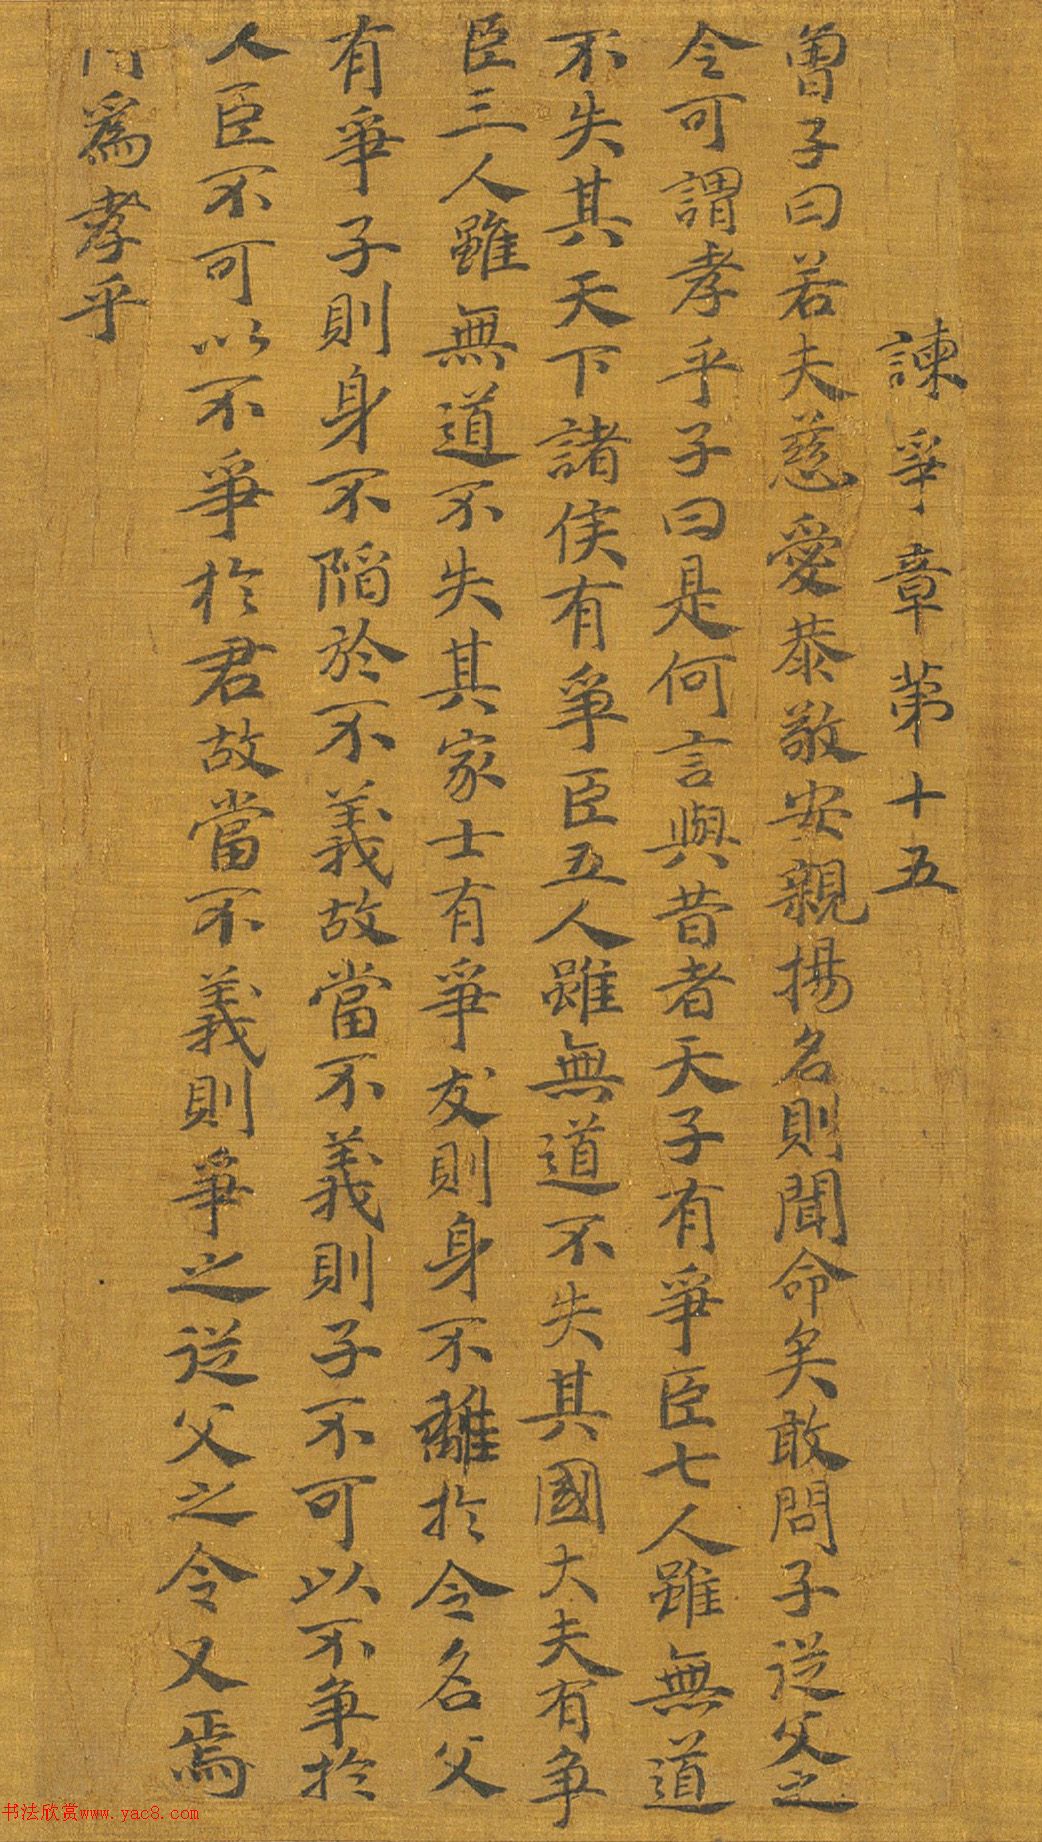 諫爭章第十五
曾子曰若夫慈愛恭敬安親揚名則聞命矣敢問子從父之
令可謂孝乎子曰是何言與昔者天子有爭臣七人雖無道
不失其天下諸侯有爭臣五人雖無道不失其國大夫有争
臣三人雖無道不失其家士有爭友則身不離於令名父
有爭子則身不陷於不義故當不義則子不可以不争於
人臣不可以不爭於君故當不義則爭之從父之令又焉
爲孝乎
书法欣赏www.yac8.com